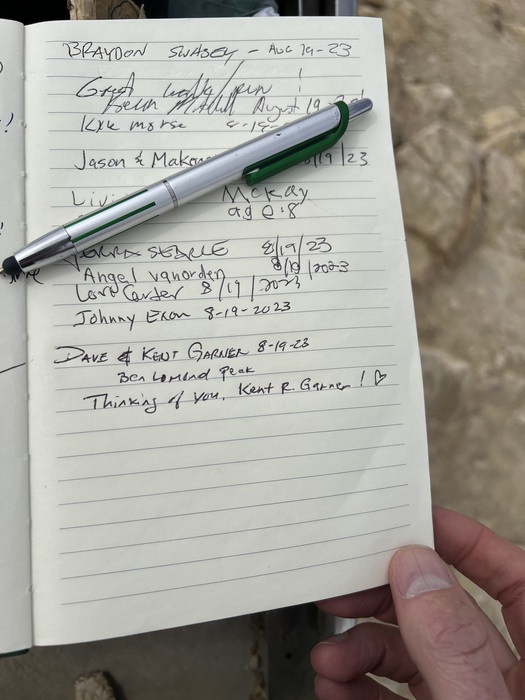 BRAYDON SWASEY - AUG 19-23
Great walk/run !
August 19
Kyle morse 8-19-
Jason & Maken 8/19/23
Livi McKay
age:8
SEARLE 8/19/23
Angel vanorden 8/19/2023
Carter 8/19/2023
Johnny Exon 8-19-2023
DAVE & KENT GARNER 8-19-23
Ben Lomond Peak
Thinking of you, Kent R. Garner ! ♡